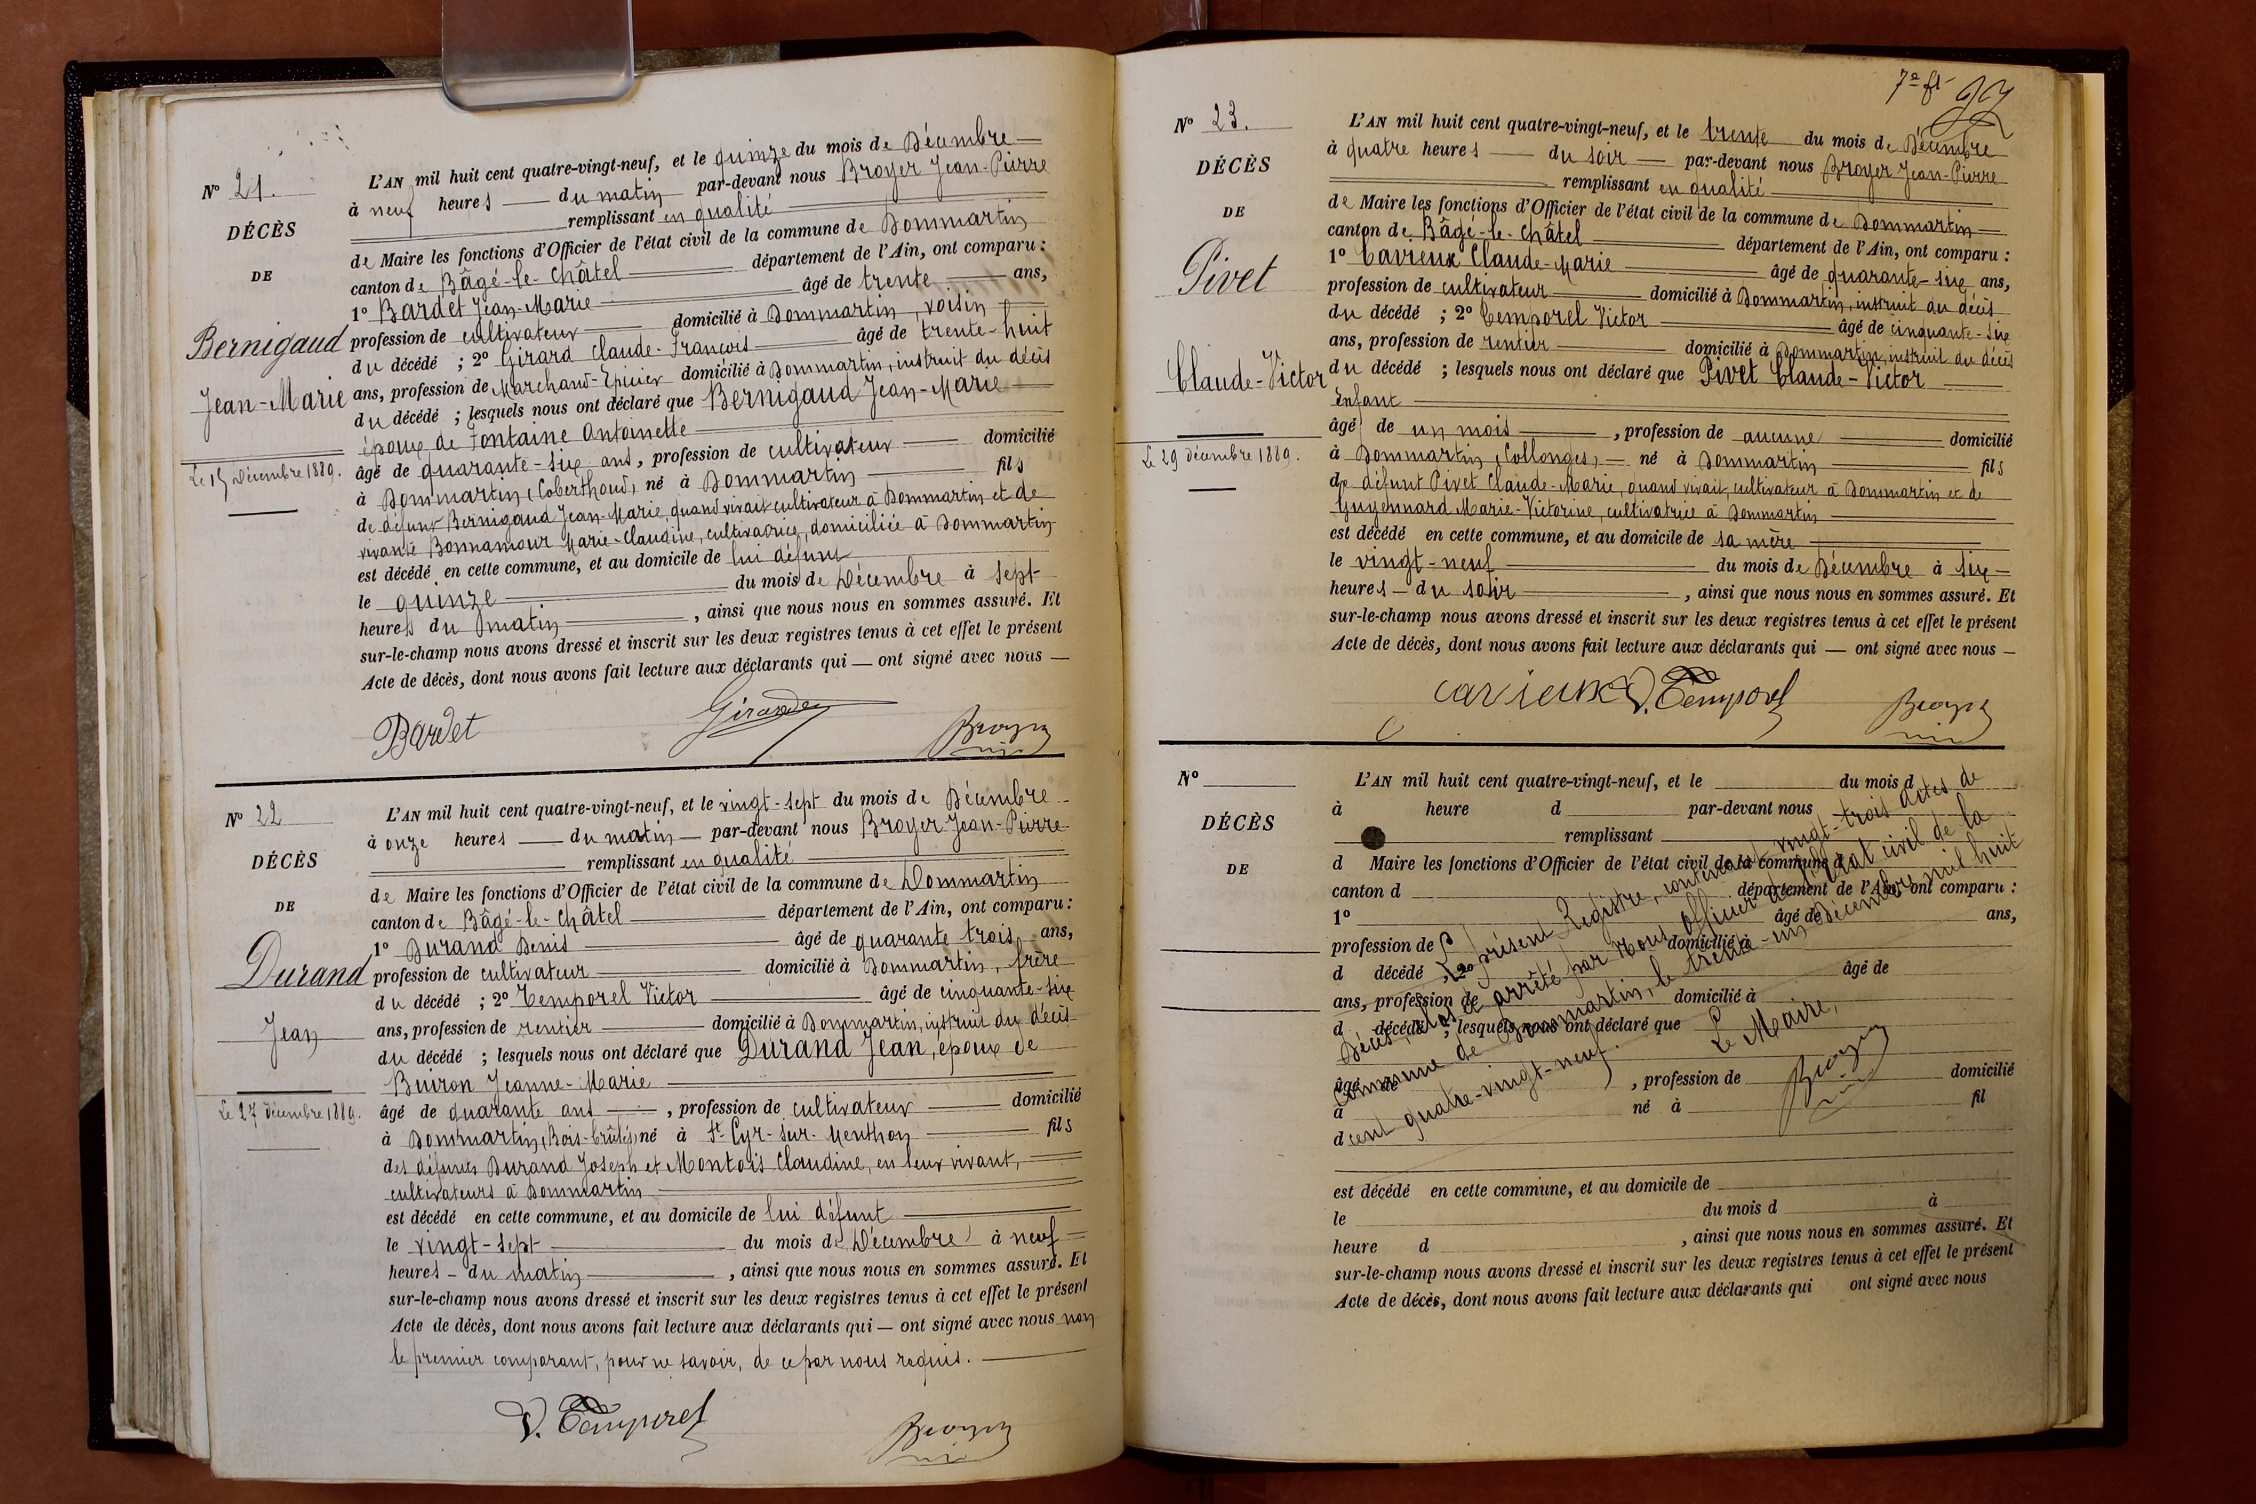 N° 21.
DÉCÈS
DE
Bernigaud
Jean-Marie
Le 15 Décembre 1889.
L'AN mil huit cent quatre-vingt-neuf, et le quinze du mois de Décembre
à neuf heures du matin par-devant nous Broyer Jean-Pierre
remplissant en qualité
de Maire les fonctions d'Officier de l'état civil de la commune de Dommartin
canton de Bâgé-le-Châtel département de l'Ain, ont comparu :
1° Bardet Jean-Marie âgé de trente ans,
profession de cultivateur domicilié à Dommartin, voisin
du décédé ; 2° Girard Claude-François âgé de trente-huit
ans, profession de Marchand-Epicier domicilié à Dommartin, instruit du décès
du décédé ; lesquels nous ont déclaré que Bernigaud Jean-Marie
époux de Fontaine Antoinette
âgé de quarante-six ans, profession de cultivateur domicilié
à Dommartin (Coberthoud) né à Dommartin fils
de défunt Bernigaud Jean-Marie, quand vivait cultivateur à Dommartin et de
vivante Bonnamour Marie-Claudine, cultivatrice, domiciliée à Dommartin
est décédé en cette commune, et au domicile de lui défunt
le quinze du mois de Décembre à sept
heures du matin, ainsi que nous nous en sommes assuré. Et
sur-le-champ nous avons dressé et inscrit sur les deux registres tenus à cet effet le présent
Acte de décès, dont nous avons fait lecture aux déclarants qui — ont signé avec nous —
Bardet Girard Broyer
N° 22
DÉCÈS
DE
Durand
Jean
Le 27 Décembre 1889.
L'AN mil huit cent quatre-vingt-neuf, et le vingt-sept du mois de Décembre
à onze heures du matin par-devant nous Broyer Jean-Pierre
remplissant en qualité
de Maire les fonctions d'Officier de l'état civil de la commune de Dommartin
canton de Bâgé-le-Châtel département de l'Ain, ont comparu :
1° Durand Denis âgé de quarante trois ans,
profession de cultivateur domicilié à Dommartin, frère
du décédé ; 2° Temporel Victor âgé de cinquante-six
ans, profession de rentier domicilié à Dommartin, instruit du décès
du décédé ; lesquels nous ont déclaré que Durand Jean, époux de
Buiron Jeanne-Marie
âgé de quarante ans, profession de cultivateur domicilié
à Dommartin, (Bois-brûlés) né à St Cyr-sur-Menthon fils
des défunts Durand Joseph et Montois Claudine, en leur vivant,
cultivateurs à Dommartin
est décédé en cette commune, et au domicile de lui défunt
le vingt-sept du mois de Décembre à neuf
heures - du matin, ainsi que nous nous en sommes assuré. Et
sur-le-champ nous avons dressé et inscrit sur les deux registres tenus à cet effet le présent
Acte de décès, dont nous avons fait lecture aux déclarants qui — ont signé avec nous non
le premier comparant, pour ne savoir, de ce par nous requis.
V. Temporel Broyer
7e ft
N° 23.
DÉCÈS
DE
Pivet
Claude-Victor
Le 29 décembre 1889.
L'AN mil huit cent quatre-vingt-neuf, et le trente du mois de Décembre
à quatre heures du soir par-devant nous Broyer Jean-Pierre
remplissant en qualité
de Maire les fonctions d'Officier de l'état civil de la commune de Dommartin
canton de Bâgé-le-Châtel département de l'Ain, ont comparu :
1° Carieux Claude-Marie âgé de quarante-six ans,
profession de cultivateur domicilié à Dommartin, instruit du décès
du décédé ; 2° Temporel Victor âgé de cinquante-six
ans, profession de rentier domicilié à Dommartin, instruit du décès
du décédé ; lesquels nous ont déclaré que Pivet Claude-Victor
Enfant
âgé de un mois, profession de aucune domicilié
à Dommartin (Collonges) né à Dommartin fils
de défunt Pivet Claude-Marie, quand vivait, cultivateur à Dommartin et de
Guyennard Marie-Victorine, cultivatrice à Dommartin
est décédé en cette commune, et au domicile de sa mère
le vingt-neuf du mois de Décembre à six
heures - du soir, ainsi que nous nous en sommes assuré. Et
sur-le-champ nous avons dressé et inscrit sur les deux registres tenus à cet effet le présent
Acte de décès, dont nous avons fait lecture aux déclarants qui — ont signé avec nous —
carieux V. Temporel Broyer
N°
DÉCÈS
DE
L'AN mil huit cent quatre-vingt-neuf, et le du mois d
à heure d par-devant nous
remplissant
d Maire les fonctions d'Officier de l'état civil de la commune d
canton d département de l'Ain, ont comparu :
1° âgé de ans,
profession de domicilié à
d décédé ; 2° âgé de
ans, profession de domicilié à
d décédé ; lesquels nous ont déclaré que
âgé de , profession de domicilié
à né à fil
d
est décédé en cette commune, et au domicile de
le du mois d à
heure d , ainsi que nous nous en sommes assuré. Et
sur-le-champ nous avons dressé et inscrit sur les deux registres tenus à cet effet le présent
Acte de décès, dont nous avons fait lecture aux déclarants qui ont signé avec nous
Le présent Registre, contenant vingt-trois actes de
Décès, clos et arrêté par Nous, Officier de l'état civil de la
Commune de Dommartin, le trente-un Décembre mil huit
cent quatre-vingt-neuf.
Le Maire,
Broyer